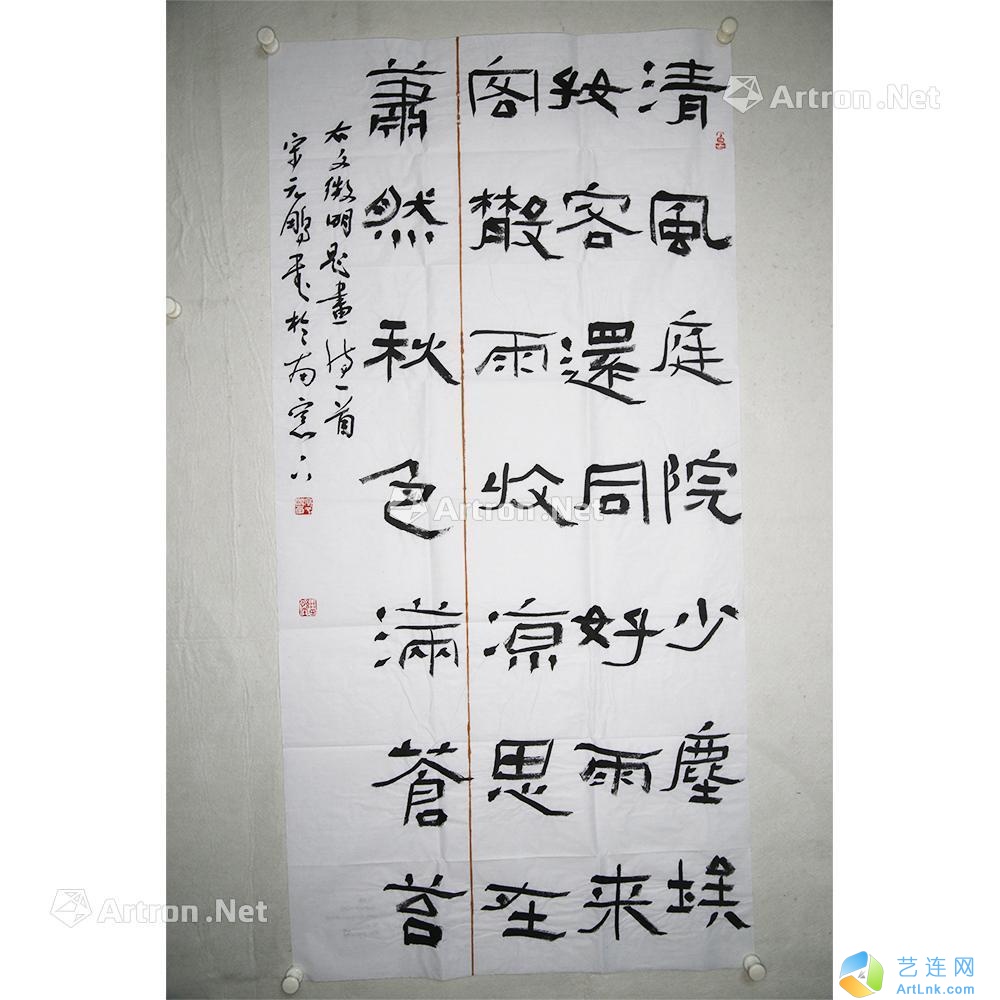 清風庭院少塵埃
好客還同好雨来
客散雨收涼思在
蕭然秋色滿蒼苔
右文徵明題畫詩一首
宋元鵬書於南窓下
Artron.Net
Artron.Net
Artron.Net
艺连网
ArtLnk.com